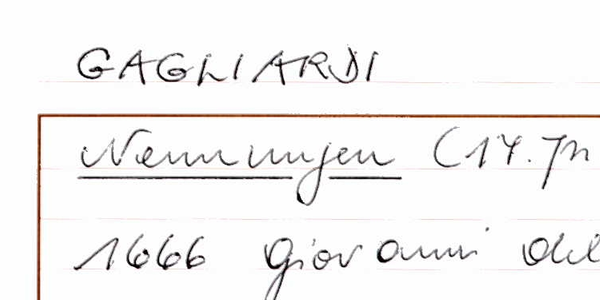 GAGLIARDI
Nenningen (14.Jh
1666 Giovanni